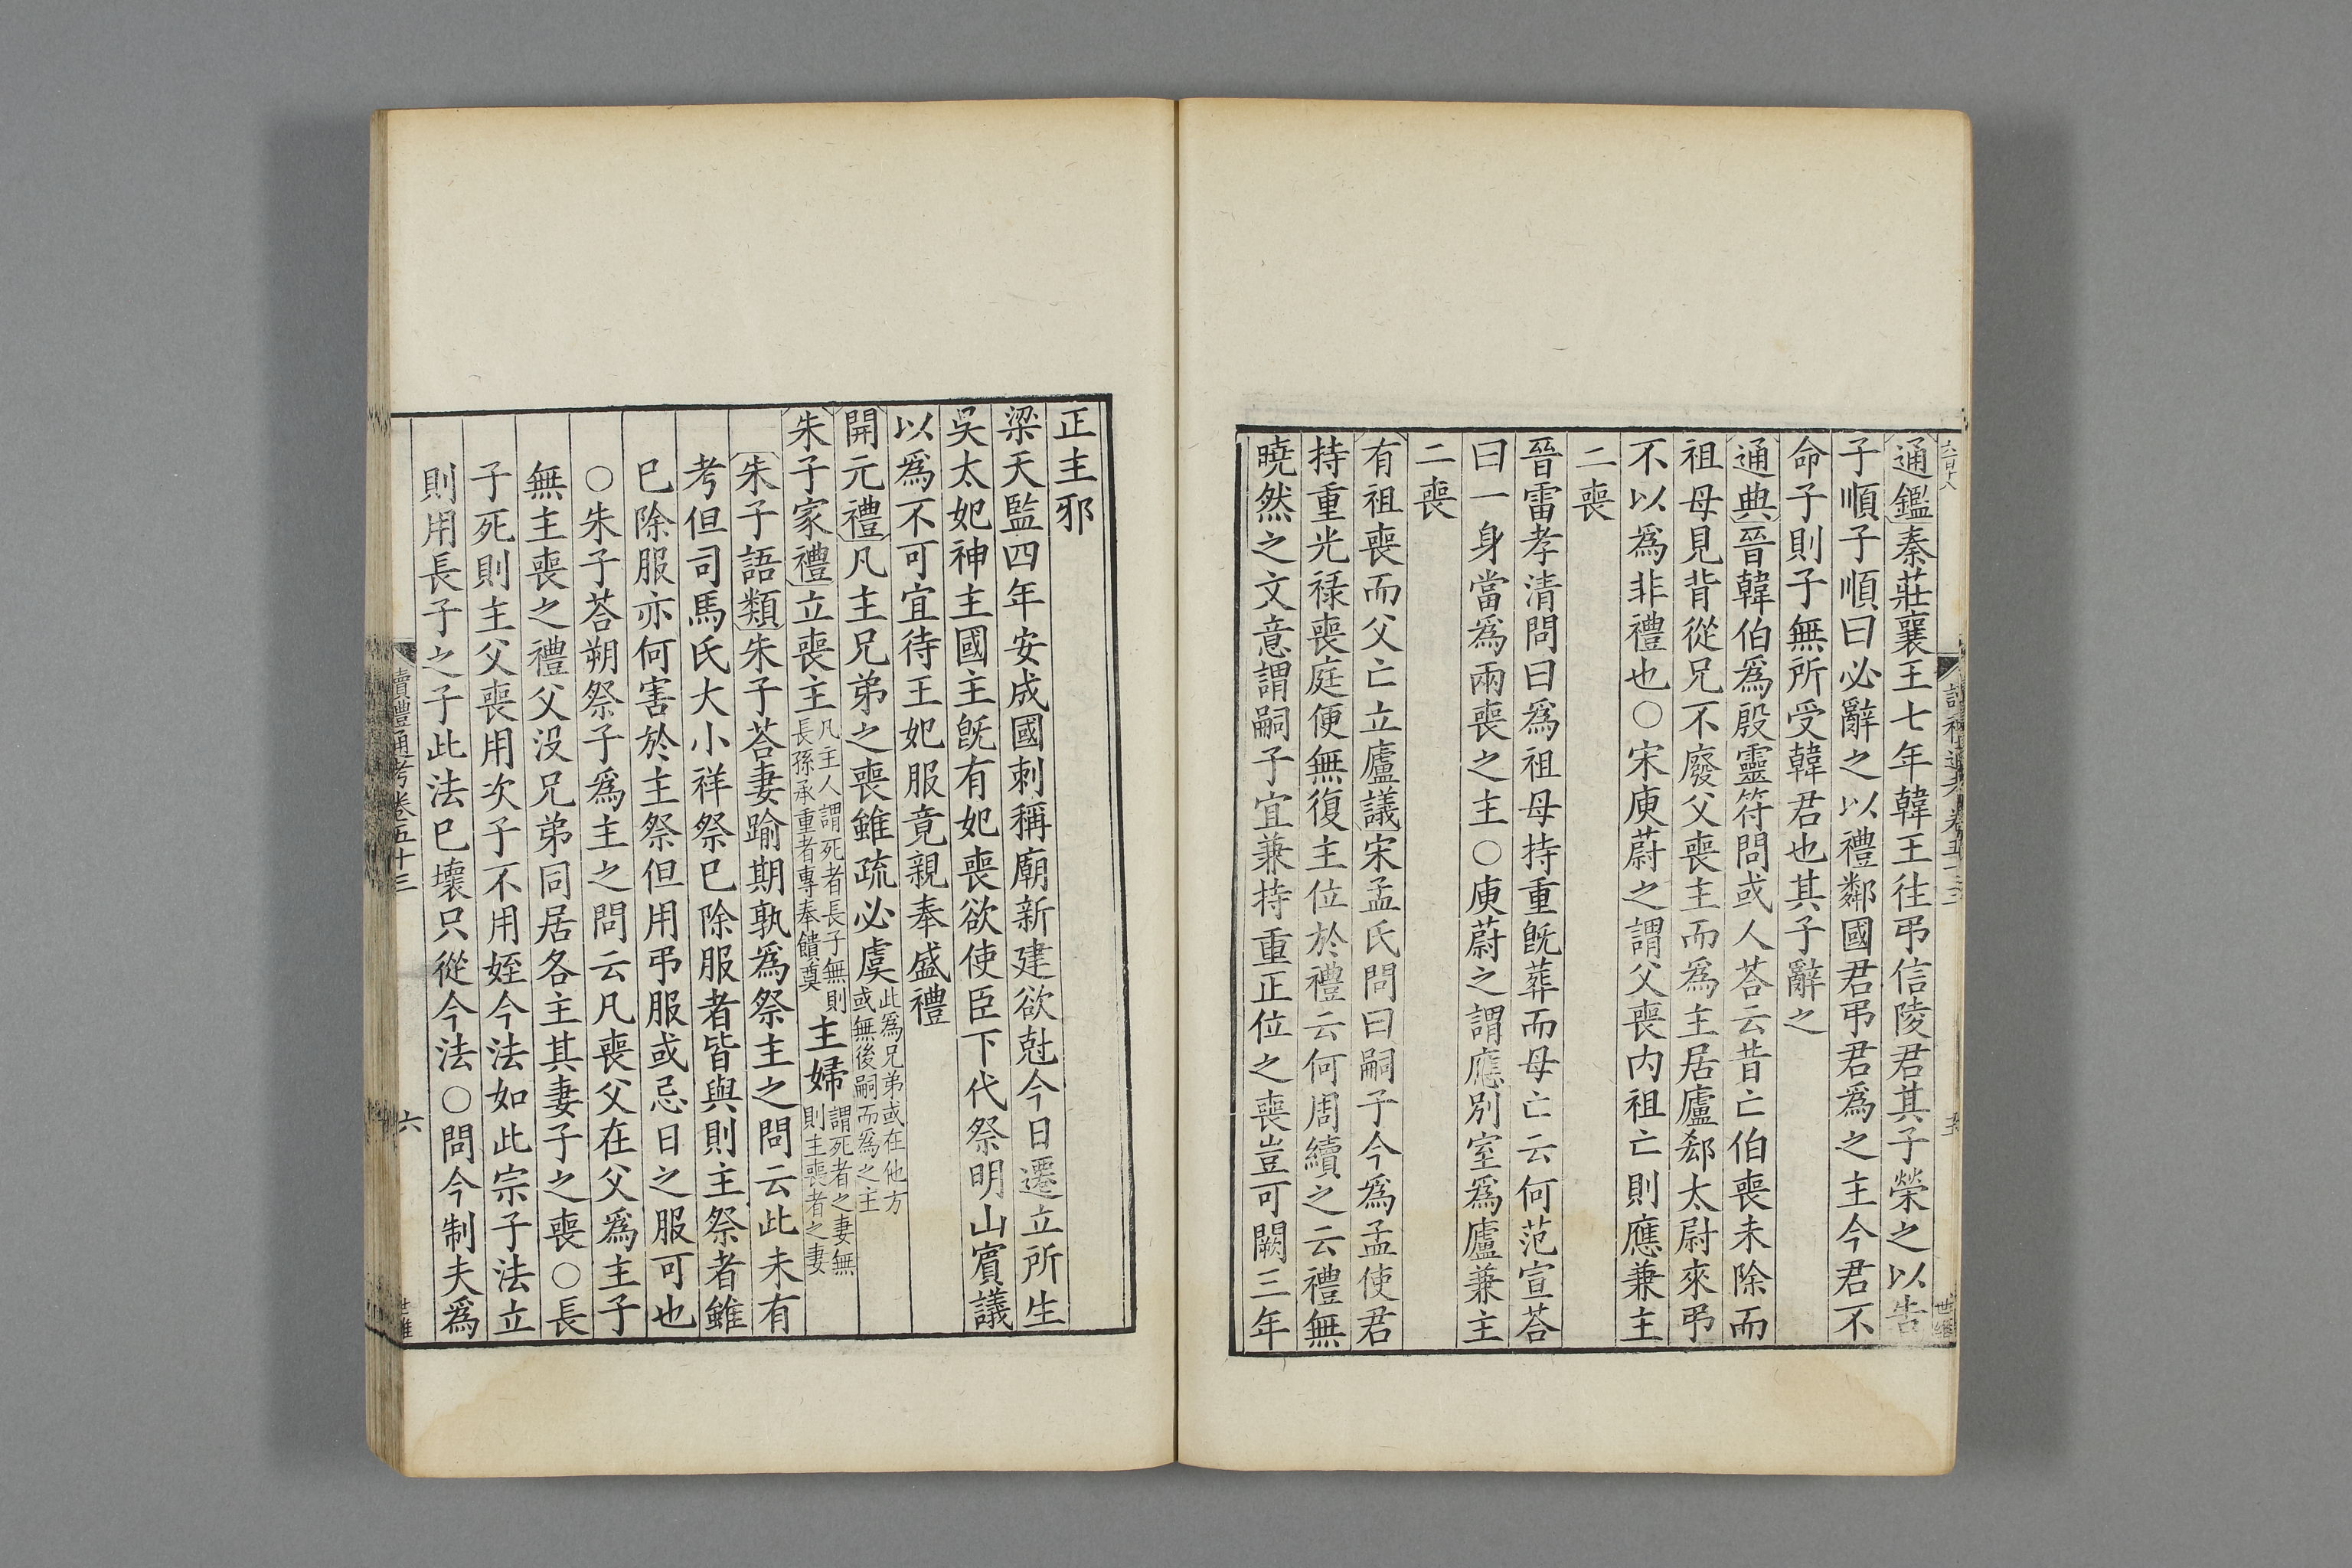 通鑑秦莊襄王七年韓王徃弔信陵君其子榮之以告
子順子順曰必辭之以禮鄰國君弔君爲之主今君不
命子則子無所受韓君也其子辭之
通典晉韓伯爲殷靈符問或人荅云昔亡伯喪未除而
祖母見背從兄不廢父喪主而爲主居廬郄太尉來弔
不以爲非禮也○宋庾蔚之謂父喪内祖亡則應兼主
二喪
晉雷孝清問曰爲祖母持重旣葬而母亡云何范宣荅
曰一身當爲兩喪之主○庾蔚之謂應别室爲廬兼主
二喪
有祖喪而父亡立廬議宋孟氏問曰嗣子今爲孟使君
持重光禄喪庭便無復主位於禮云何周續之云禮無
曉然之文意謂嗣子宜兼持重正位之喪豈可闕三年
正主邪
梁天監四年安成國刺稱廟新建欲尅今日遷立所生
吳太妃神主國主旣有妃喪欲使臣下代祭明山賓議
以爲不可宜待王妃服竟親奉盛禮
開元禮凡主兄弟之喪雖疏必虞此爲兄弟或在他方或無後嗣而爲之主
朱子家禮立喪主凡主人謂死者長子無則長孫承重者專奉饋奠主婦謂死者之妻無則主喪者之妻
朱子語類朱子荅妻踰期孰爲祭主之問云此未有
考但司馬氏大小祥祭已除服者皆與則主祭者雖
已除服亦何害於主祭但用弔服或忌日之服可也
○朱子荅朔祭子爲主之問云凡喪父在父爲主子
無主喪之禮父没兄弟同居各主其妻子之喪○長
子死則主父喪用次子不用姪今法如此宗子法立
則用長子之子此法已壞只從今法○問今制夫爲
讀禮通考卷五十三
六